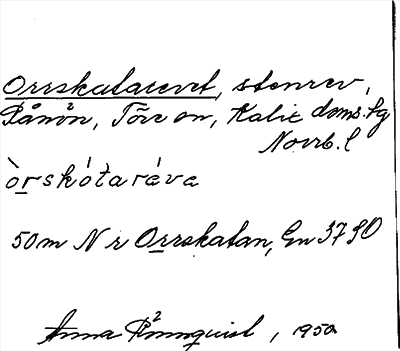 Orrskatarevet, stenrev,
Rånön, Töre sn, Kalix doms. lg
Norrb. l
òrskótaráva
50m N r Orrskatan, Gn 37 SO
Anna Rönnquist, 1950